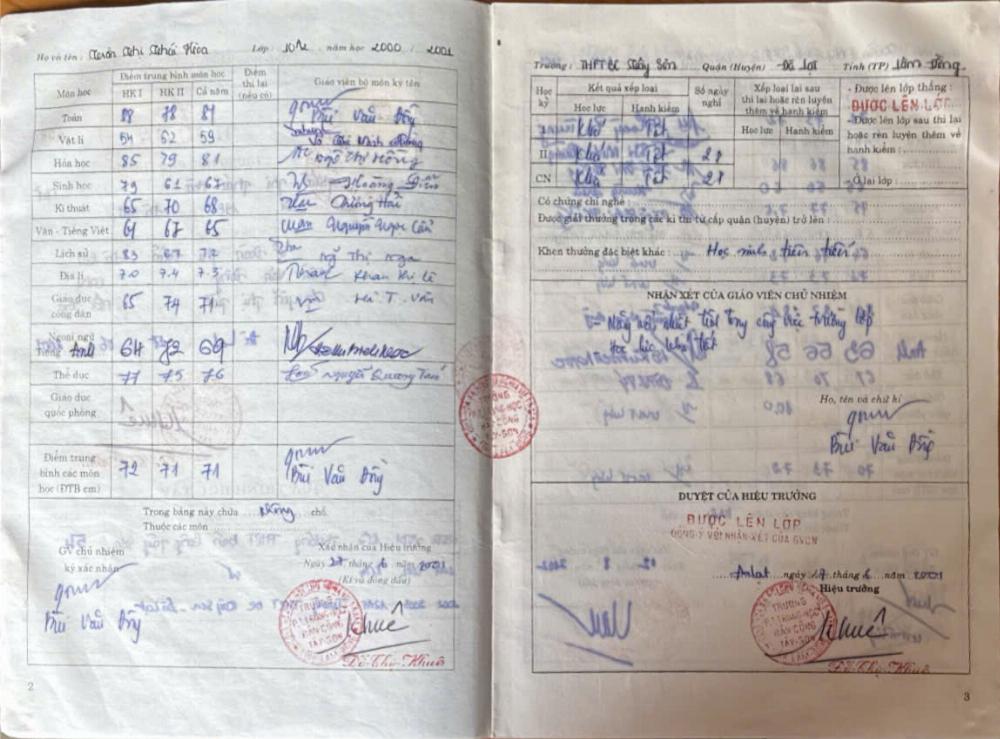 Họ và tên : Trần Thị Thái Hòa Lớp : 10A2 . năm học 2000 / 2001
Môn học
Điểm trung bình môn học
HK I HK II Cả năm
Điểm
thi lại
(nếu có)
Giáo viên bộ môn ký tên
Toán 88 78 81 Bùi Văn Đồng
Vật lí 54 62 59
Hóa học 85 79 81 Ngô Thị Hồng
Sinh học 79 61 67 Hoàng
Kĩ thuật 65 70 68
Văn - Tiếng Việt 61 67 65 Nguyễn Ngọc
Lịch sử 83 67 72
Địa lí 7.0 7.4 7.3
Giáo dục
công dân 65 74 71
Ngoại ngữ
Tiếng Anh 64 72 69
Thể dục 77 75 76 Nguyễn
Giáo dục
quốc phòng
Điểm trung
bình các môn
học (ĐTB cm) 72 71 71 Bùi Văn Đồng
Trong bảng này chữa không chỗ
Thuộc các môn
GV chủ nhiệm
ký xác nhận
Bùi Văn Đồng
Xác nhận của Hiệu trưởng
Ngày 27 tháng 6 năm 2001
(Kí và đóng dấu)
TRƯỜNG
P.T TRUNG HỌC
BÁN CÔNG
TÂY-SƠN
Khuê
Đỗ Thọ Khuê
2
Trường : THPT BC Tây Sơn Quận (Huyện) Đà Lạt Tỉnh (TP) Lâm Đồng
Học
kỳ
Kết quả xếp loại
Học lực Hạnh kiểm
Số ngày
nghỉ
Xếp loại lại sau
thi lại hoặc rèn luyện
thêm về hạnh kiểm
Học lực Hạnh kiểm
- Được lên lớp thẳng :
ĐƯỢC LÊN LỚP
- Được lên lớp sau thi lại
hoặc rèn luyện thêm về
hạnh kiểm :
- Ở lại lớp :
I Khá Tốt
II Khá Tốt 28
CN Khá Tốt 28
Có chứng chỉ nghề :
Được giải thưởng trong các kì thi từ cấp quận (huyện) trở lên :
Khen thưởng đặc biệt khác : Học sinh tiên tiến
NHẬN XÉT CỦA GIÁO VIÊN CHỦ NHIỆM
trong công tác trường lớp
Họ, tên và chữ kí
Bùi Văn Đồng
DUYỆT CỦA HIỆU TRƯỞNG
ĐƯỢC LÊN LỚP
ĐỒNG Ý VỚI NHẬN XÉT CỦA GVCN
Đàlạt ngày 27 tháng 6 năm 2001
Hiệu trưởng
TRƯỜNG
P.T TRUNG HỌC
BÁN CÔNG
TÂY-SƠN
Khuê
Đỗ Thọ Khuê
3